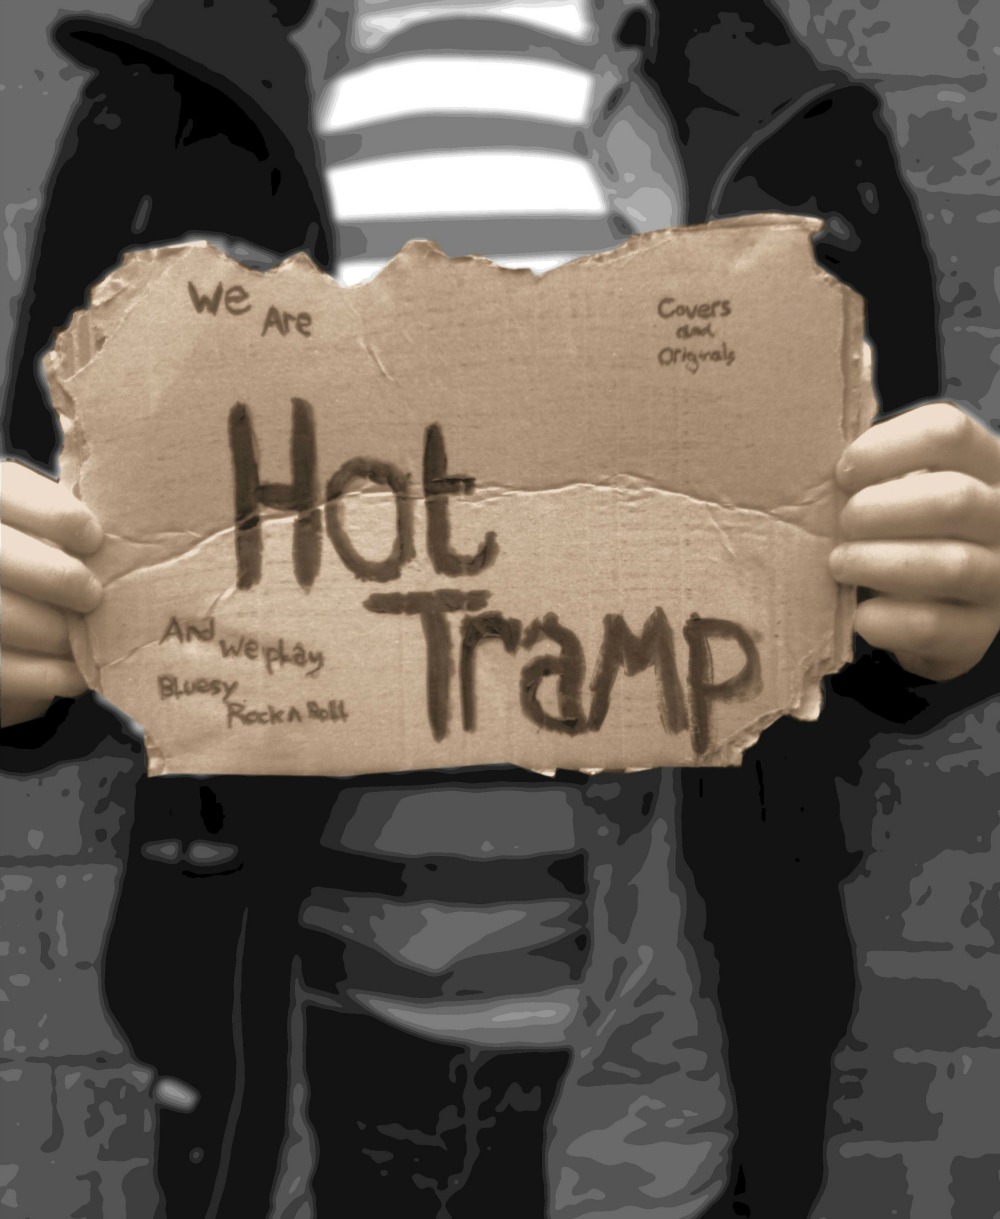 We
Are
Covers
and
Originals
Hot
Tramp
And
We play
Bluesy
Rock n Roll